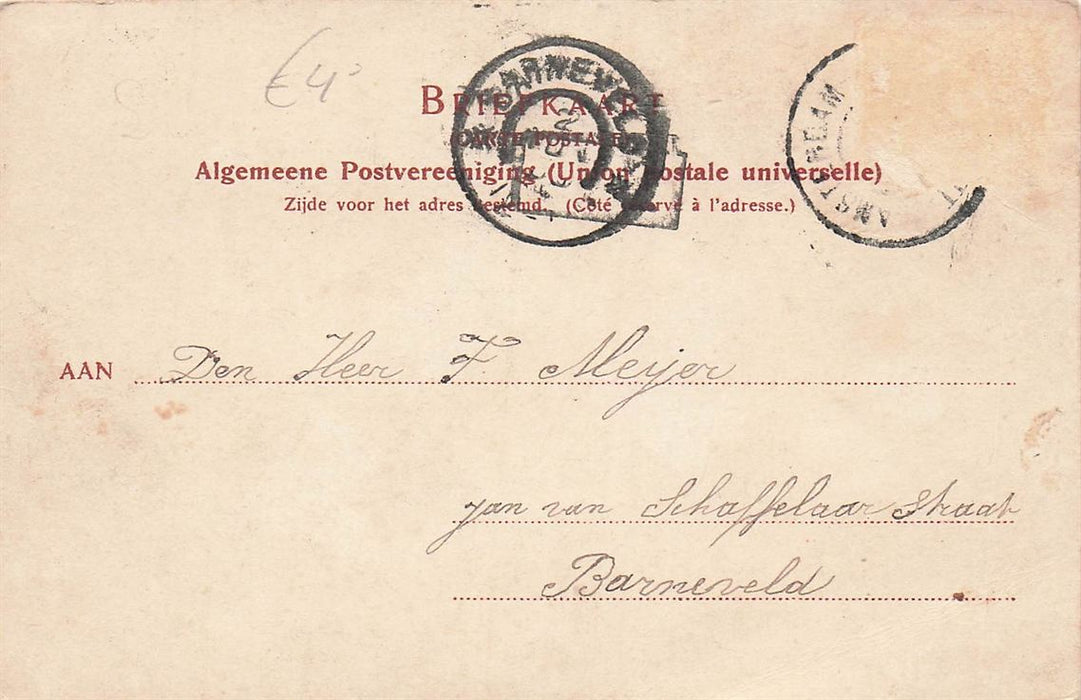 €4
BRIEFKAART
CARTE POSTALE
Algemeene Postvereeniging (Union Postale universelle)
Zijde voor het adres bestemd. (Côté réservé à l'adresse.)
BARNEVELD
AMSTERDAM
AAN Den Heer F. Meijer
Jan van Schaffelaar straat
Barneveld